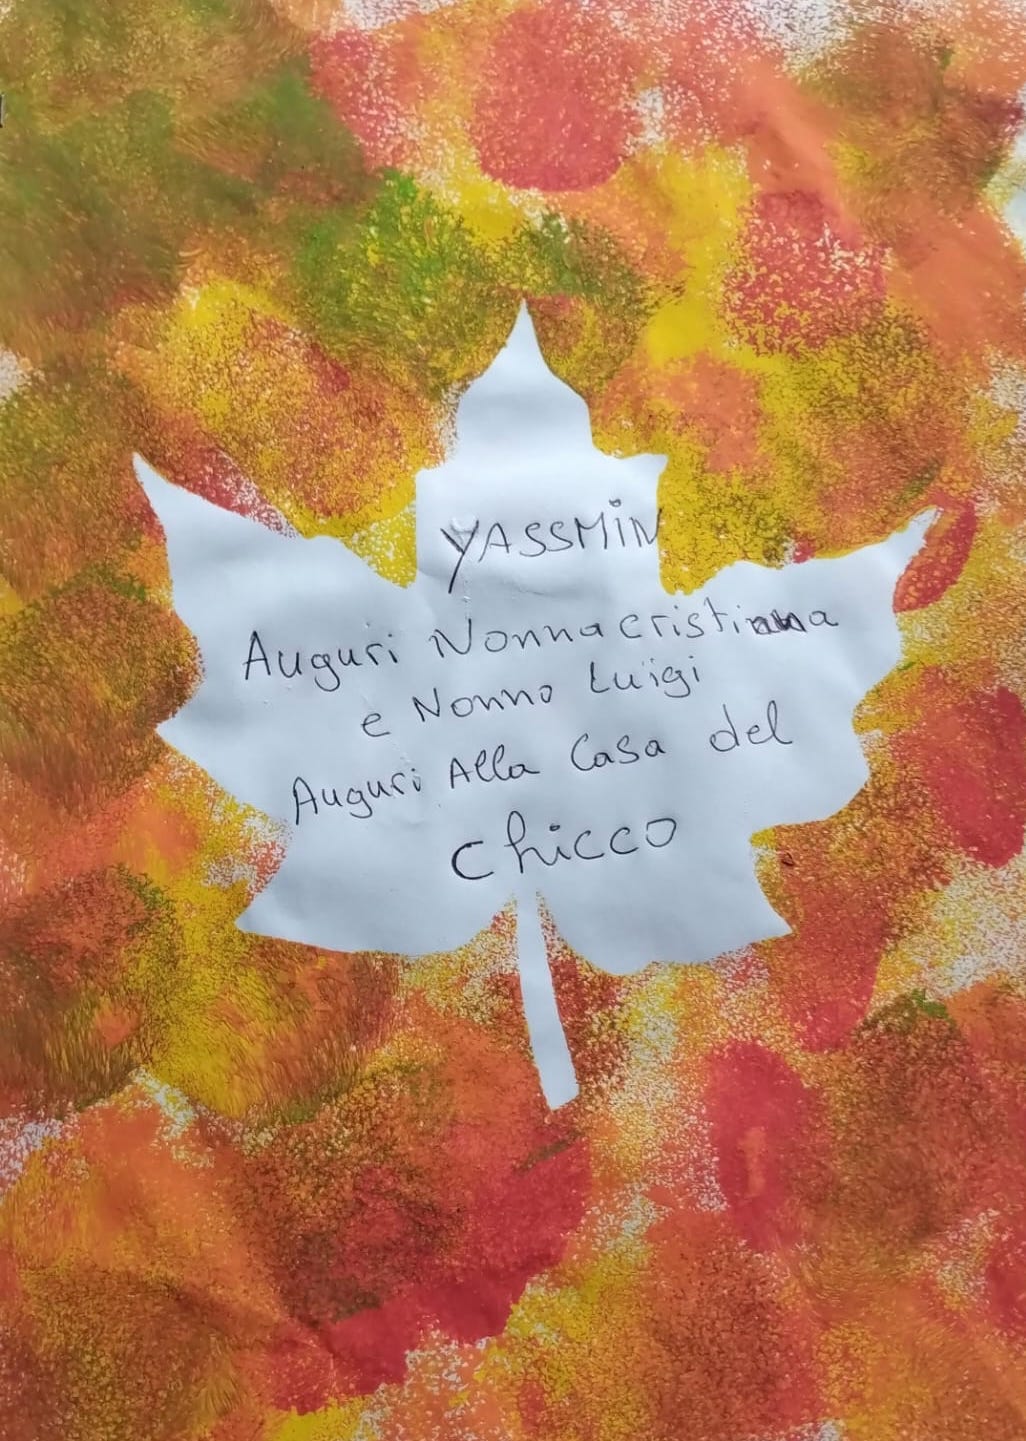 YASSMIN
Auguri Nonna cristina
e Nonno Luigi
Auguri Alla Casa del
Chicco